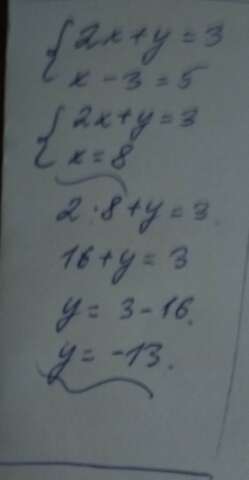 {2x+y=3
x-3=5
{2x+y=3
x=8
2·8+y=3.
16+y=3
y=3-16.
y=-13.